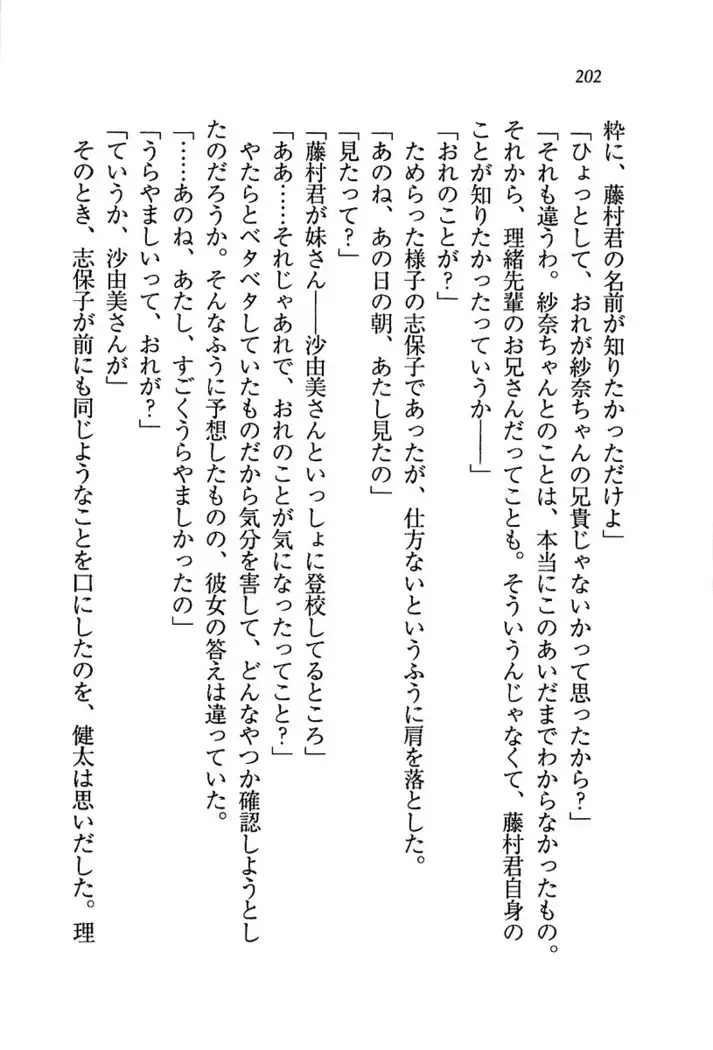 202
粋に、藤村君の名前が知りたかっただけよ」
「ひょっとして、おれが紗奈ちゃんの兄貴じゃないかって思ったから？」
「それも違うわ。紗奈ちゃんとのことは、本当にこのあいだまでわからなかったもの。
それから、理緒先輩のお兄さんだってことも。そういうんじゃなくて、藤村君自身の
ことが知りたかったっていうか――」
「おれのことが？」
ためらった様子の志保子であったが、仕方ないというふうに肩を落とした。
「あのね、あの日の朝、あたし見たの」
「見たって？」
「藤村君が妹さん――沙由美さんといっしょに登校してるところ」
「ああ……それじゃあれで、おれのことが気になったってこと？」
やたらとベタベタしていたものだから気分を害して、どんなやつか確認しようとし
たのだろうか。そんなふうに予想したものの、彼女の答えは違っていた。
「……あのね、あたし、すごくうらやましかったの」
「うらやましいって、おれが？」
「ていうか、沙由美さんが」
そのとき、志保子が前にも同じようなことを口にしたのを、健太は思いだした。理